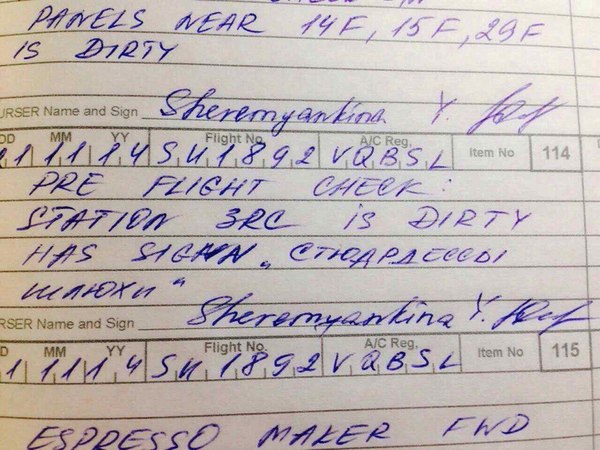 PANELS NEAR 14F, 15F, 29F
IS DIRTY
URSER Name and Sign Sheremyankina Y.
DD MM YY Flight No. A/C Reg.
11 11 14 SU1892 VQBSL Item No 114
PRE FLIGHT CHECK:
STATION 3RC IS DIRTY
HAS SIGNN „СТЮАРДЕССЫ
ШЛЮХИ"
RSER Name and Sign Sheremyankina Y.
D MM YY Flight No. A/C Reg.
1 11 14 SU1892 VQBSL Item No 115
ESPRESSO MAKER FWD